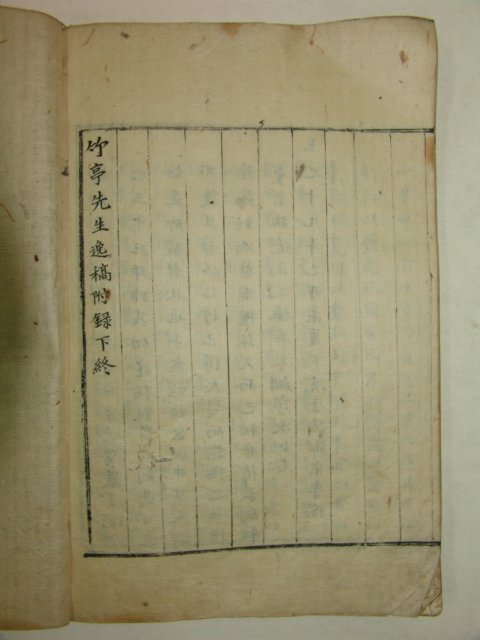 竹亭先生逸稿附録下終